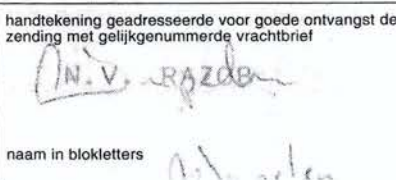 handtekening geadresseerde voor goede ontvangst de
zending met gelijkgenummerde vrachtbrief
N. V.
naam in blokletters